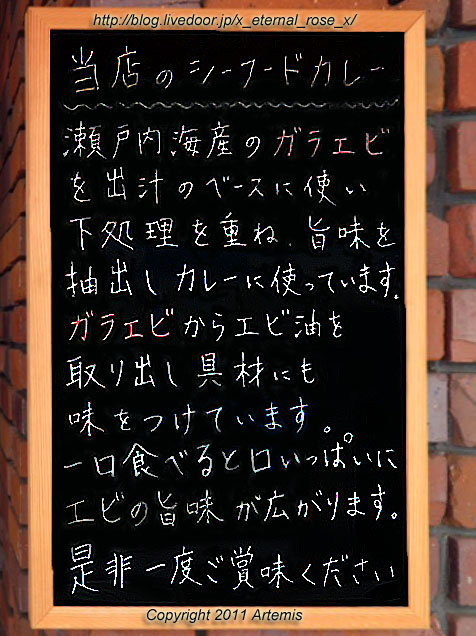 http://blog.livedoor.jp/x_eternal_rose_x/
当店のシーフードカレー
瀬戸内海産のガラエビ
を出汁のベースに使い
下処理を重ね、旨味を
抽出しカレーに使っています。
ガラエビからエビ油を
取り出し具材にも
味をつけています。
一口食べると口いっぱいに
エビの旨味が広がります。
是非一度ご賞味ください
Copyright 2011 Artemis